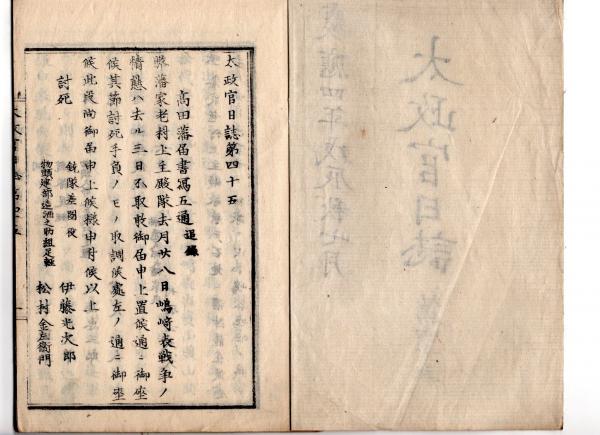 太政官日誌第四十五
慶應四年戊辰秋七月
太政官日誌第四十五
高田藩届書寫五通 追録
弊藩家老村上主殿隊去月廿八日嶋崎表戦争ノ
情態ハ去ル三日不取敢御届申上置候通ニ御座
候其節討死手負ノモノ取調候處左ノ通ニ御座
候此段尚御届申上候様申付候以上
討死
銃隊差圖役 伊藤光次郎
物頭建部造酒之助組足軽 松村金左衛門